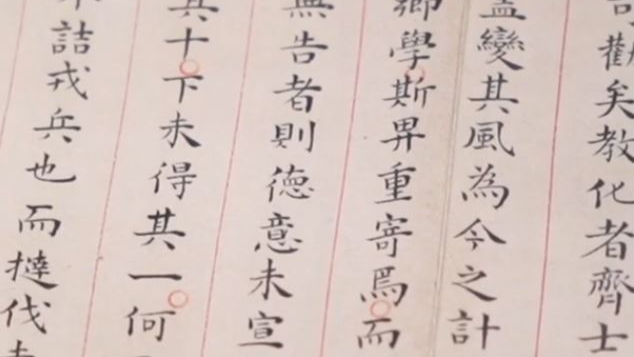 勸矣教化者齊士
變其風為今之計
學斯畀重寄焉而
無告者則德意未宣
其十下未得其一何
詰戎兵也而撻伐